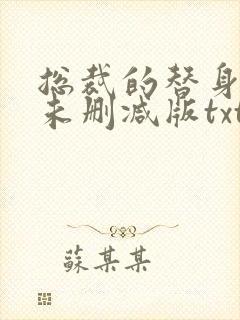 总裁的替身
未删减版txt
蘇某某